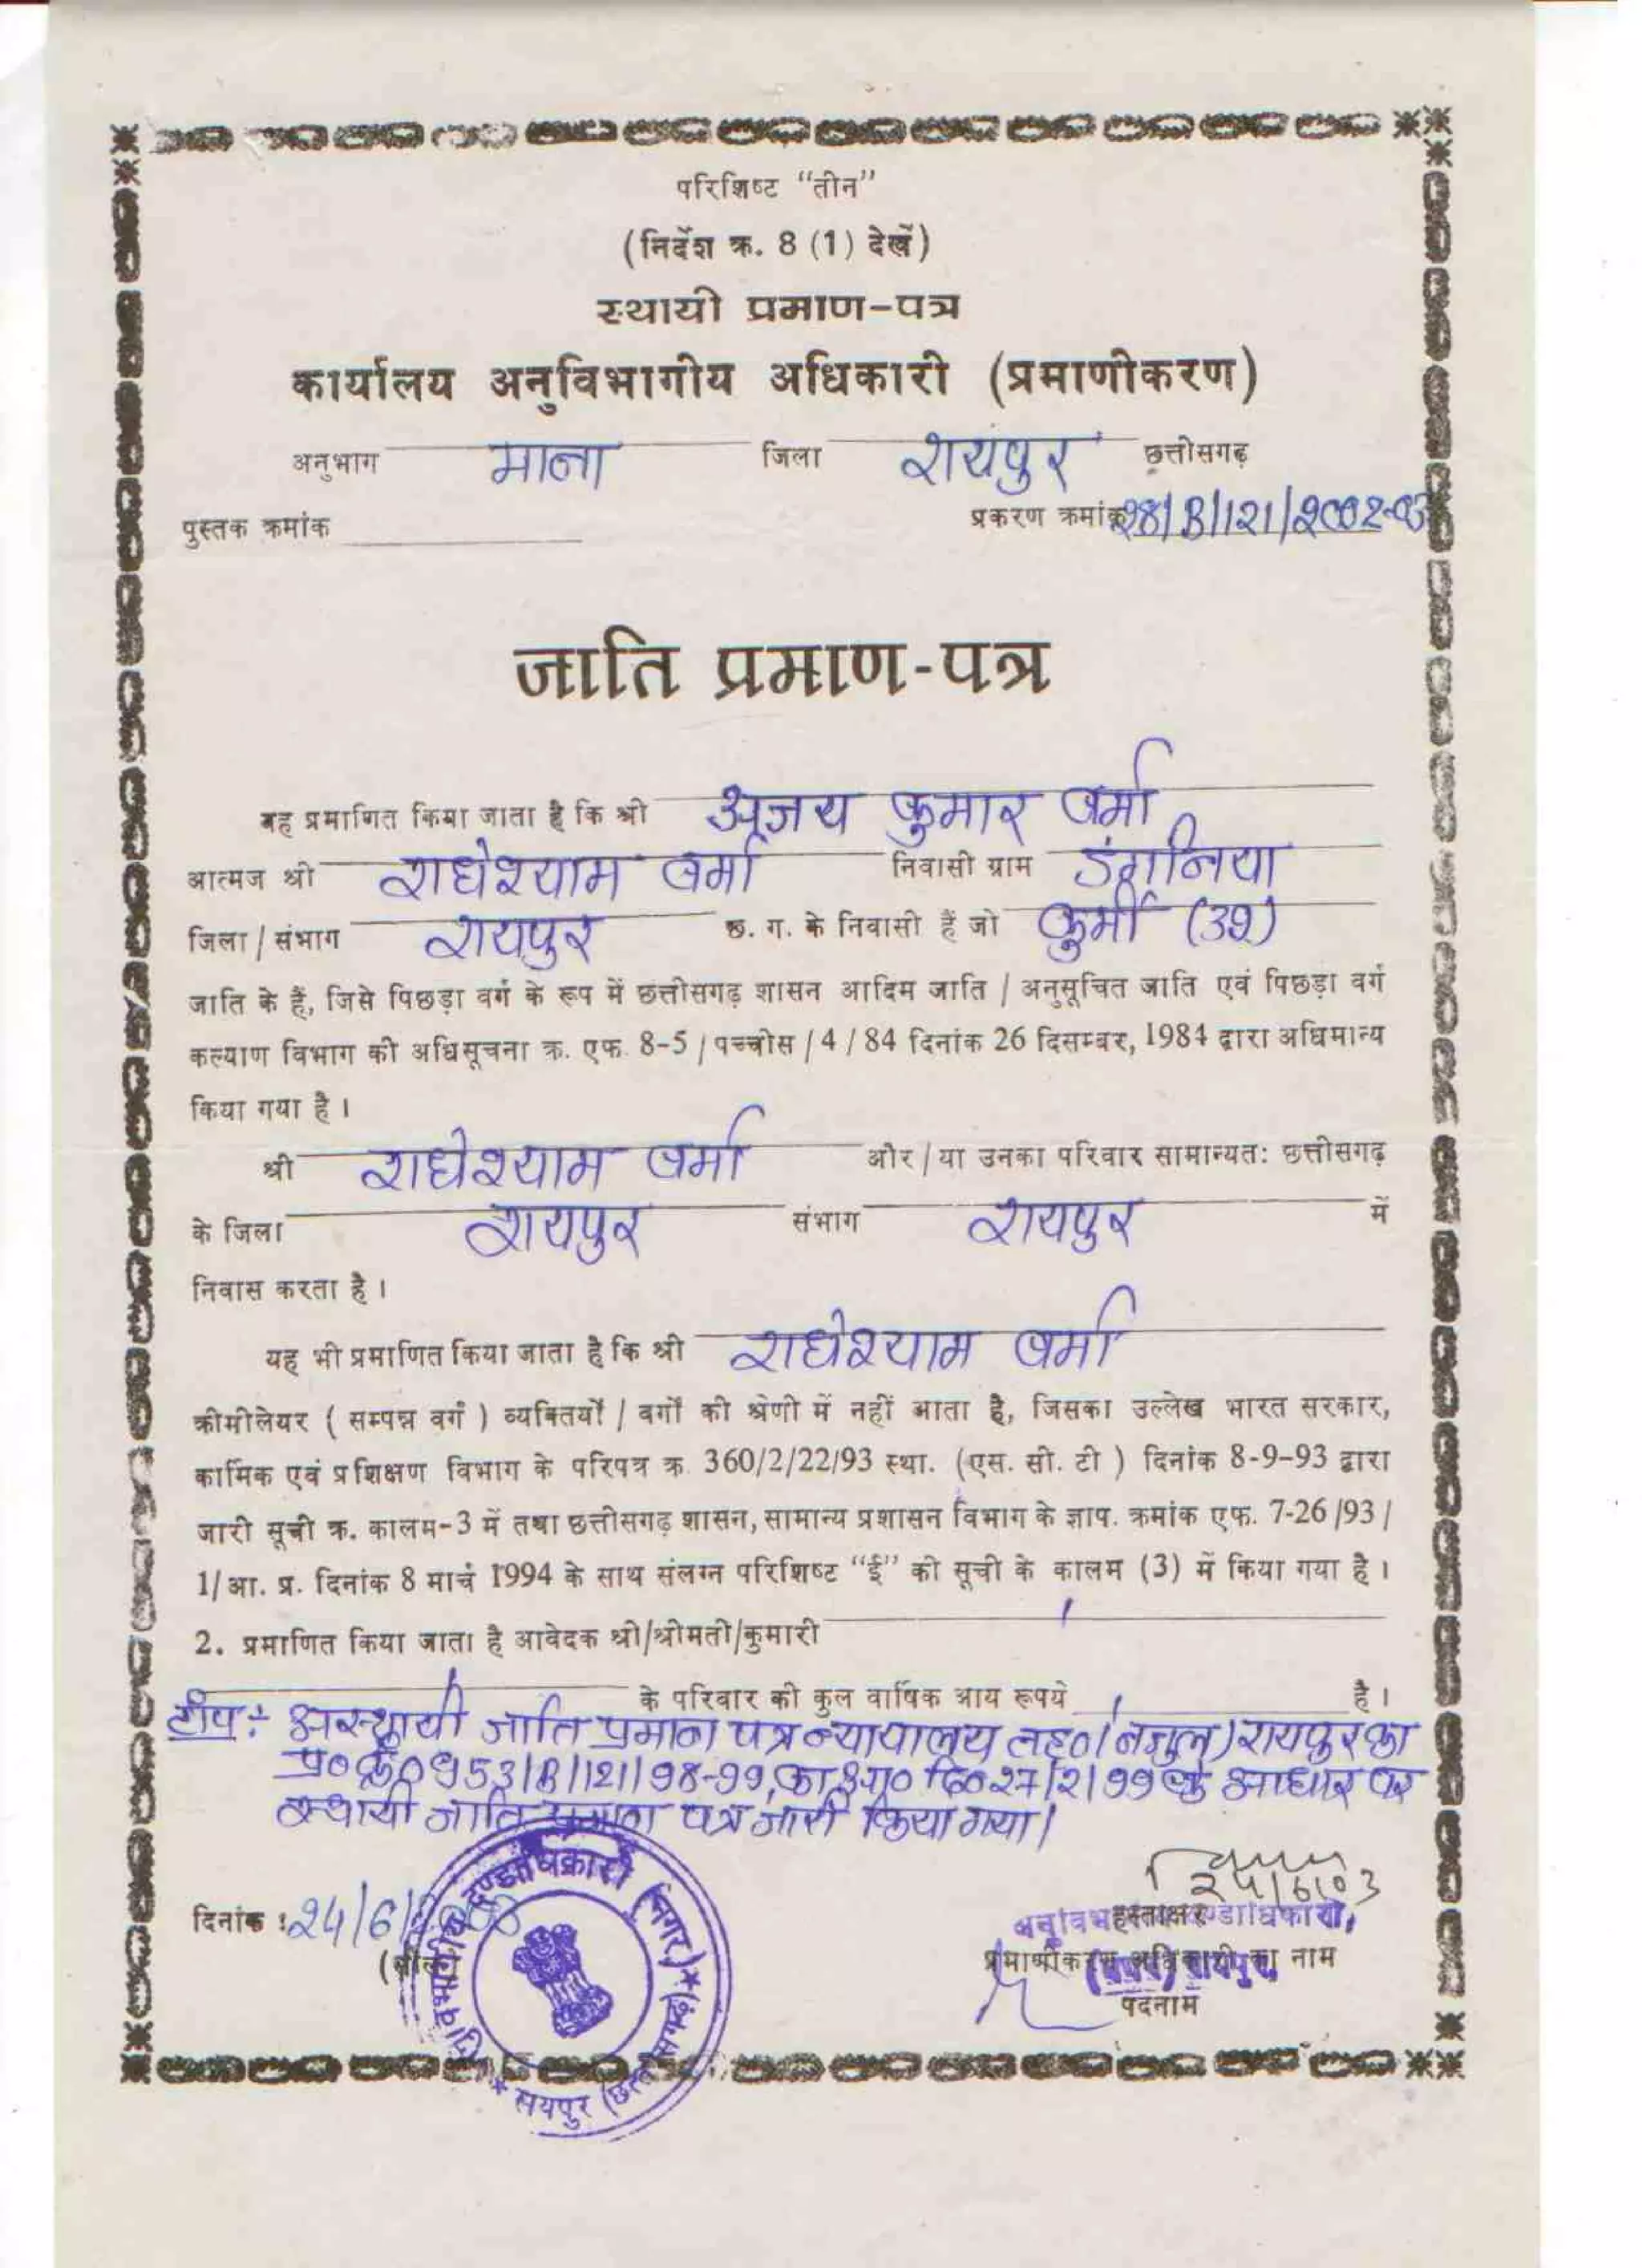 परिशिष्ट “तीन”
(निर्देश क्र. 8 (1) देखें)
स्थायी प्रमाण-पत्र
कार्यालय अनुविभागीय अधिकारी (प्रमाणीकरण)
अनुभाग माना जिला रायपुर छत्तीसगढ़
पुस्तक क्रमांक प्रकरण क्रमांक /B/121/2002-03
जाति प्रमाण-पत्र
यह प्रमाणित किया जाता है कि श्री अजय कुमार वर्मा
आत्मज श्री राधेश्याम वर्मा निवासी ग्राम डंगनिया
जिला / संभाग रायपुर छ. ग. के निवासी हैं जो कुर्मी (39)
जाति के हैं, जिसे पिछड़ा वर्ग के रूप में छत्तीसगढ़ शासन आदिम जाति / अनुसूचित जाति एवं पिछड़ा वर्ग
कल्याण विभाग की अधिसूचना क्र. एफ. 8-5 / पच्चीस / 4 / 84 दिनांक 26 दिसम्बर, 1984 द्वारा अधिमान्य
किया गया है ।
श्री राधेश्याम वर्मा और / या उनका परिवार सामान्यतः छत्तीसगढ़
के जिला रायपुर संभाग रायपुर में
निवास करता है ।
यह भी प्रमाणित किया जाता है कि श्री राधेश्याम वर्मा
क्रीमीलेयर ( सम्पन्न वर्ग ) व्यक्तियों / वर्गों की श्रेणी में नहीं आता है, जिसका उल्लेख भारत सरकार,
कार्मिक एवं प्रशिक्षण विभाग के परिपत्र क्र. 360/2/22/93 स्था. (एस. सी. टी ) दिनांक 8-9-93 द्वारा
जारी सूची क्र. कालम-3 में तथा छत्तीसगढ़ शासन, सामान्य प्रशासन विभाग के ज्ञाप. क्रमांक एफ. 7-26 /93 /
1/ आ. प्र. दिनांक 8 मार्च 1994 के साथ संलग्न परिशिष्ट “ई” की सूची के कालम (3) में किया गया है ।
2. प्रमाणित किया जाता है आवेदक श्री/श्रीमती/कुमारी
के परिवार की कुल वार्षिक आय रूपये है ।
टीप :- अस्थायी जाति प्रमाण पत्र न्यायालय तह० (नजुल) रायपुर का
प्र०क्रं० 953/B/121/98-99 दि० 27/2/99 के आधार पर
स्थायी जाति प्रमाण पत्र जारी किया गया।
24/6/03
दिनांक : 24/6/ हस्ताक्षर
(सील) प्रमाणीकरण अधिकारी का नाम
(नगर) रायपुर
पदनाम
अनुविभागीय दण्डाधिकारी (नगर) * रायपुर (छत्तीसगढ़) *